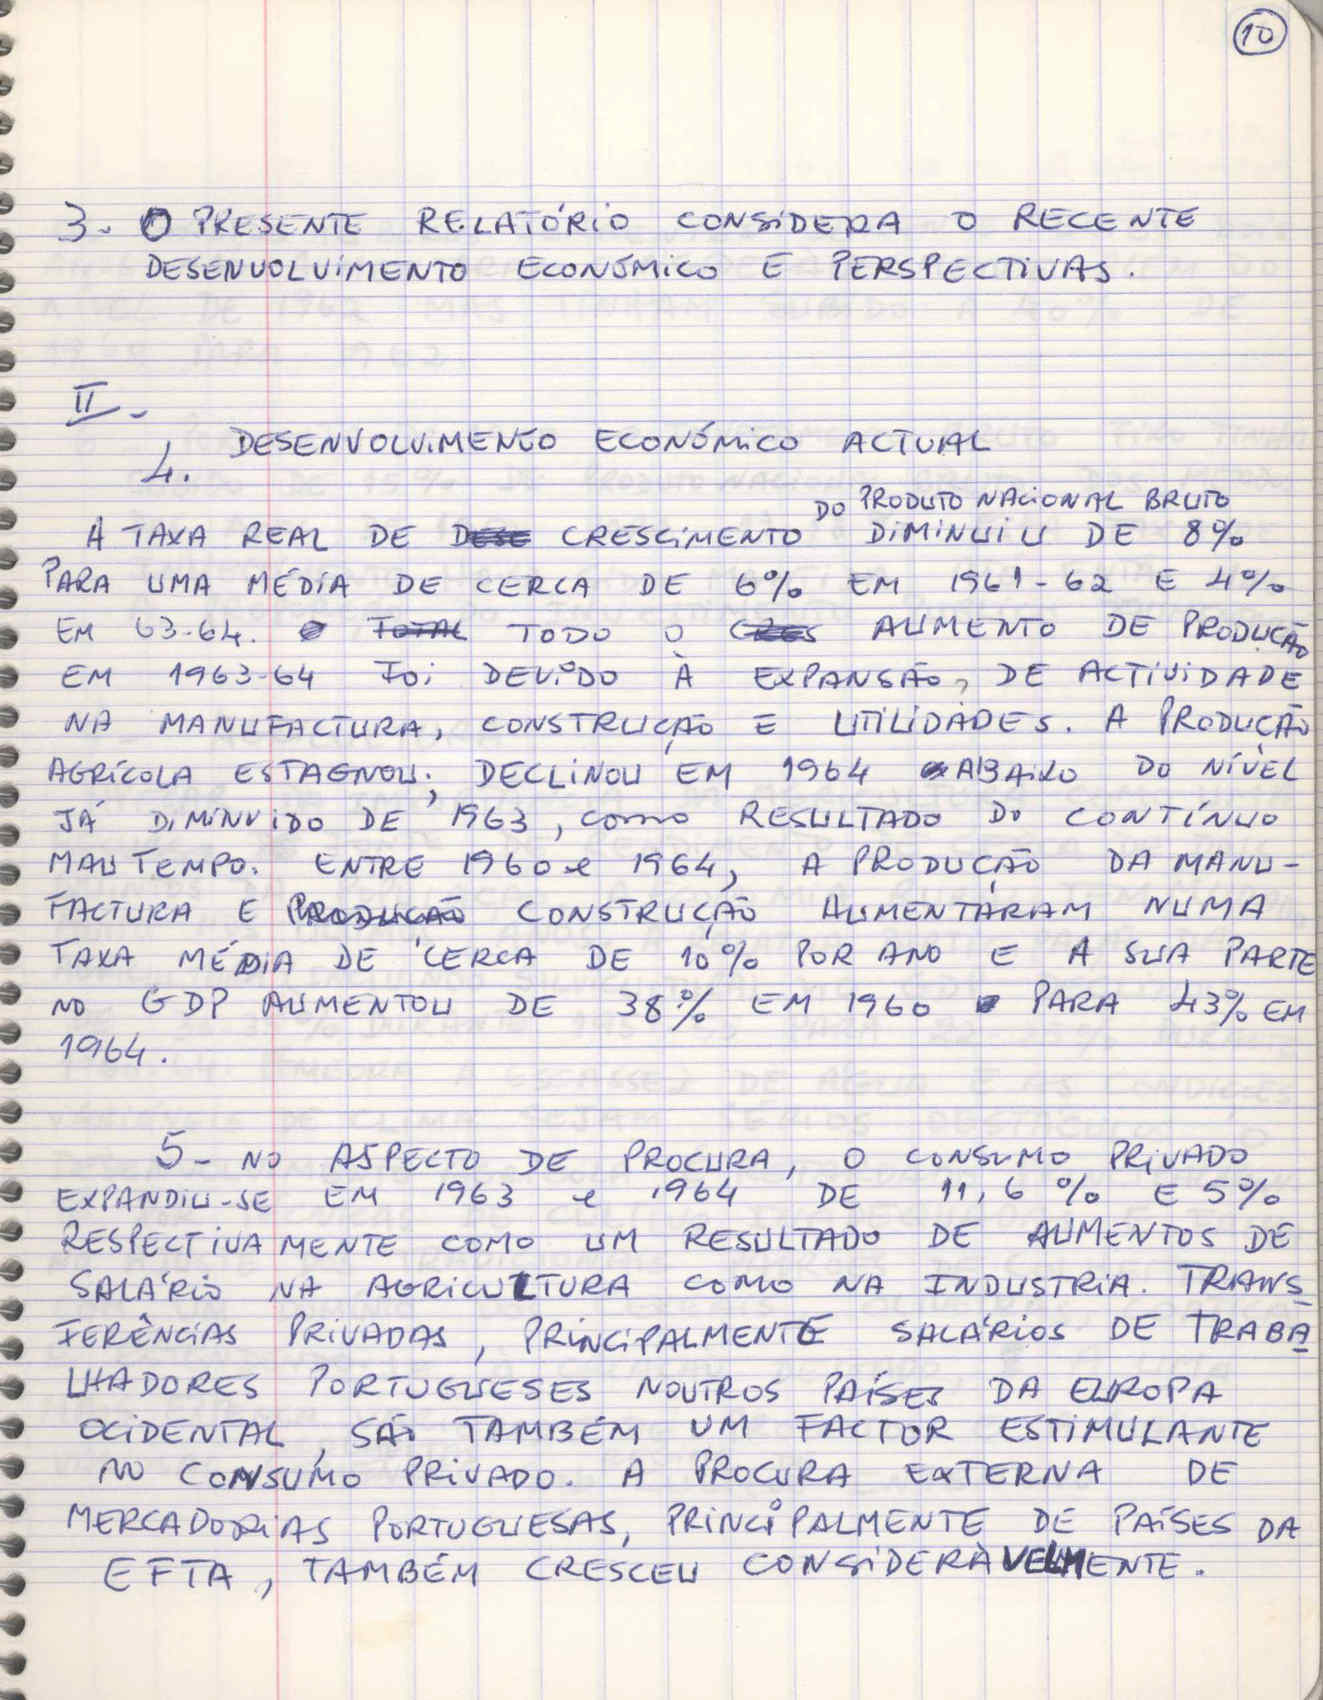 10
3. O PRESENTE RELATÓRIO CONSIDERA O RECENTE
DESENVOLVIMENTO ECONÓMICO E PERSPECTIVAS.
II-
DESENVOLVIMENTO ECONÓMICO ACTUAL
4.
DO PRODUTO NACIONAL BRUTO
A TAXA REAL DE DESE CRESCIMENTO DIMINUIU DE 8%
PARA UMA MÉDIA DE CERCA DE 6% EM 1961-62 E 4%
EM 63-64. O TOTAL TODO O CRES AUMENTO DE PRODUÇÃO
EM 1963-64 FOI DEVIDO À EXPANSÃO, DE ACTIVIDADE
NA MANUFACTURA, CONSTRUÇÃO E UTILIDADES. A PRODUÇÃO
AGRÍCOLA ESTAGNOU; DECLINOU EM 1964 ABAIXO DO NÍVEL
JÁ DIMINUIDO DE 1963, COMO RESULTADO DO CONTÍNUO
MAU TEMPO. ENTRE 1960 e 1964, A PRODUÇÃO DA MANU-
FACTURA E PRODUÇÃO CONSTRUÇÃO AUMENTARAM NUMA
TAXA MÉDIA DE CERCA DE 10% POR ANO E A SUA PARTE
NO GDP AUMENTOU DE 38% EM 1960 PARA 43% EM
1964.
5- NO ASPECTO DE PROCURA, O CONSUMO PRIVADO
EXPANDIU-SE EM 1963 e 1964 DE 11,6% E 5%
RESPECTIVAMENTE COMO UM RESULTADO DE AUMENTOS DE
SALÁRIO NA AGRICULTURA COMO NA INDUSTRIA. TRANS_
FERÊNCIAS PRIVADAS, PRINCIPALMENTE SALÁRIOS DE TRABA_
LHADORES PORTUGUESES NOUTROS PAÍSES DA EUROPA
OCIDENTAL, SÃO TAMBÉM UM FACTOR ESTIMULANTE
NO CONSUMO PRIVADO. A PROCURA EXTERNA DE
MERCADORIAS PORTUGUESAS, PRINCIPALMENTE DE PAÍSES DA
EFTA, TAMBÉM CRESCEU CONSIDERÀVELMENTE.